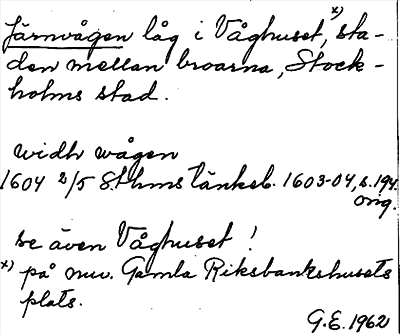 Järnvågen låg i Våghuset, x) sta-
den mellan broarna, Stock-
holms stad.
widh wågen
1604 2/5 Sthms tänkeb. 1603-04, s. 194.
orig.
se även Våghuset!
x) på nuv. Gamla Riksbankshusets
plats.
G.E. 1962